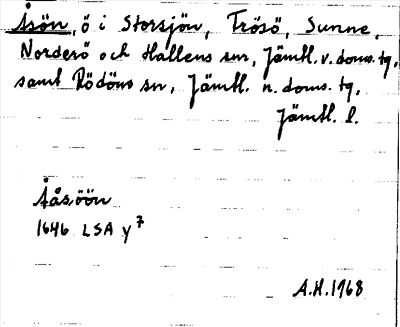 Åsön, ö i Storsjön, Frösö, Sunne,
Norderö och Hallens snr, Jämtl. v. doms. tg,
samt Rödöns sn, Jämtl. n. doms. tg,
Jämtl. l.
Åås öön
1646 LSA y7
A.H. 1968